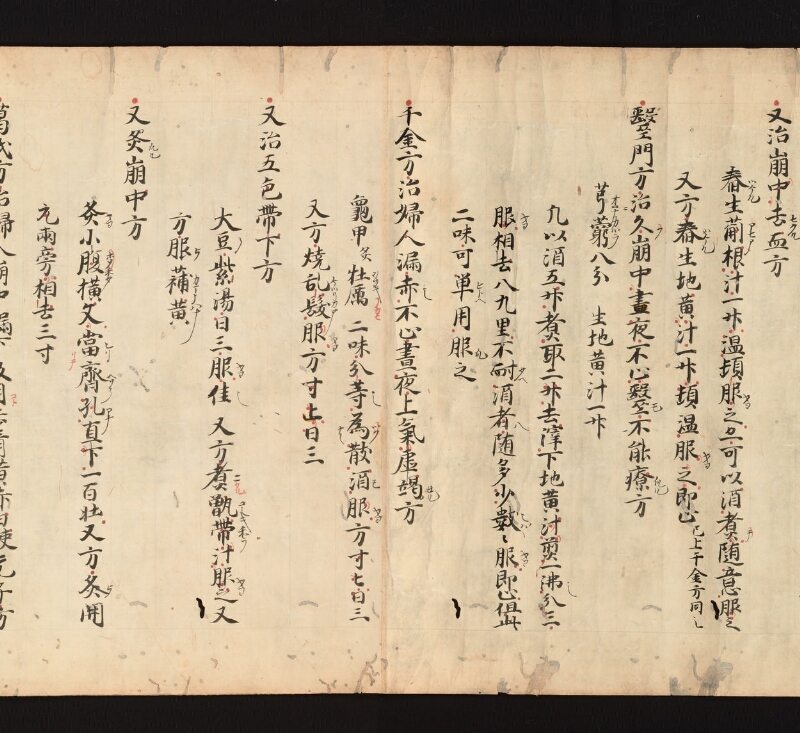 又治崩中去血方
春生葪根汁一升温頓服之亦可以酒煮随意服之
又方春生地黄汁一升頓温服之即止已上千金方同之
醫門方治久崩中晝夜不止醫不能療方
芎藭八分 生地黄汁一升
凡以酒五升煮取二升去滓下地黄汁煎一沸分三
服相去八九里不耐酒者随多少數々服即止但此
二味可単用服之
千金方治婦人漏赤不止晝夜上氣虚竭方
龜甲炙 牡厲 二味分等為散酒服方寸七日三
又方燒乱髮服方寸匕日三
又治五色帶下方
大豆紫湯日三服佳 又方煮甑帶汁服之又
方服蒲黄
又灸崩中方
灸小腹横文當齊孔直下一百壮又方灸開
元兩旁相去三寸
葛氏方治婦人崩中漏下